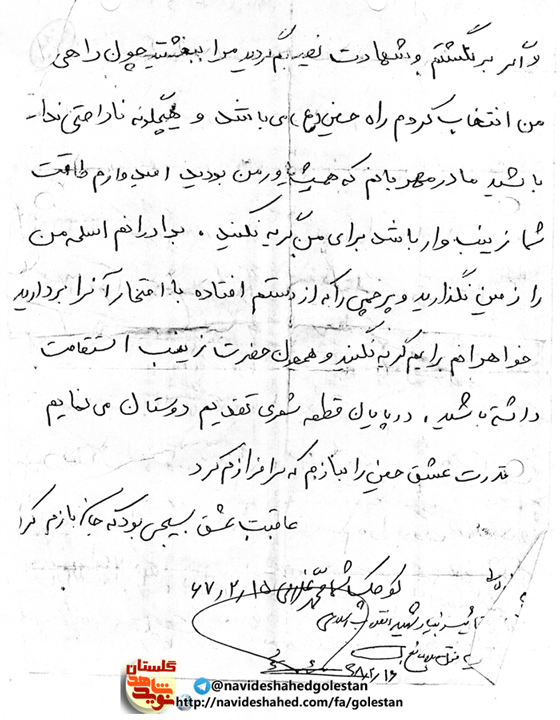 و اگر برنگشتم و شهادت نصیبم گردید مرا ببخشید چون راهی
من انتخاب کردم راه حسین (ع) می باشد و هیچگونه ناراحتی نداـ
باشید مادر مهربانم که همیشه یاور من بودید امیدوارم طاقت
شما زینب وار باشد برای من گریه نکنید . برادرانم اسلحه من
را زمین نگذارید و پرچمی را که از دستم افتاده با افتخار آنرا بردارید
خواهرانم برایم گریه نکنید و همچون حضرت زینب استقامت
داشته باشید . در پایان قطعه شعری تقدیم دوستان می نمایم
قدرت عشق حسین را بنازم که سرافرازم کرد
عاقبت عشق بسیجی بود که جانبازم کرد
کوچک شما محمد ۶۷/۲/۱۵
بنیاد شهید انقلاب اسلامی
گلستان
نوید شاهد
@navideshahedgolestan
http://navideshahed.com/fa/golestan